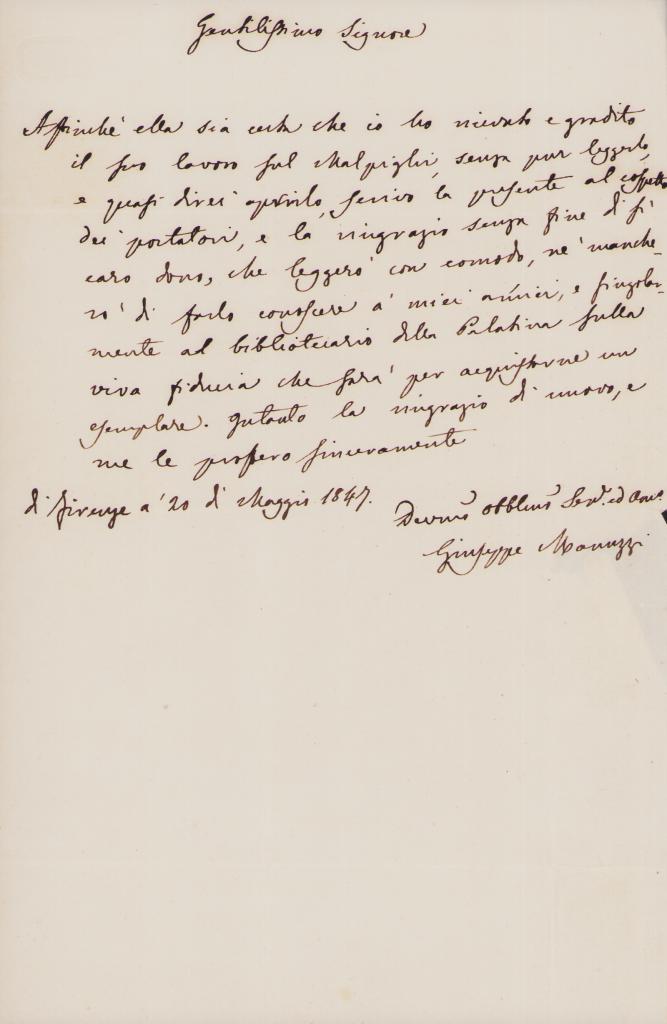 Gentilissimo Signore
Affinché ella sia certa che io ho ricevuto e gradito
il suo lavoro sul Malpighi, senza pur leggerlo,
e quasi direi aprirlo, scrivo la presente al cospetto
dei portatori, e la ringrazio senza fine di sì
caro dono, che leggerò con comodo, né manche-
rò di farlo conoscere a' miei amici, e singolar-
mente al bibliotecario della Palatina sulla
viva fiducia che sarà per acquistarne un
esemplare. Intanto la ringrazio di nuovo, e
me le profferro sinceramente
di Firenze a' 20 di Maggio 1847.
Devmo Obblmo Serv. ed Amo.
Giuseppe Manuzzi